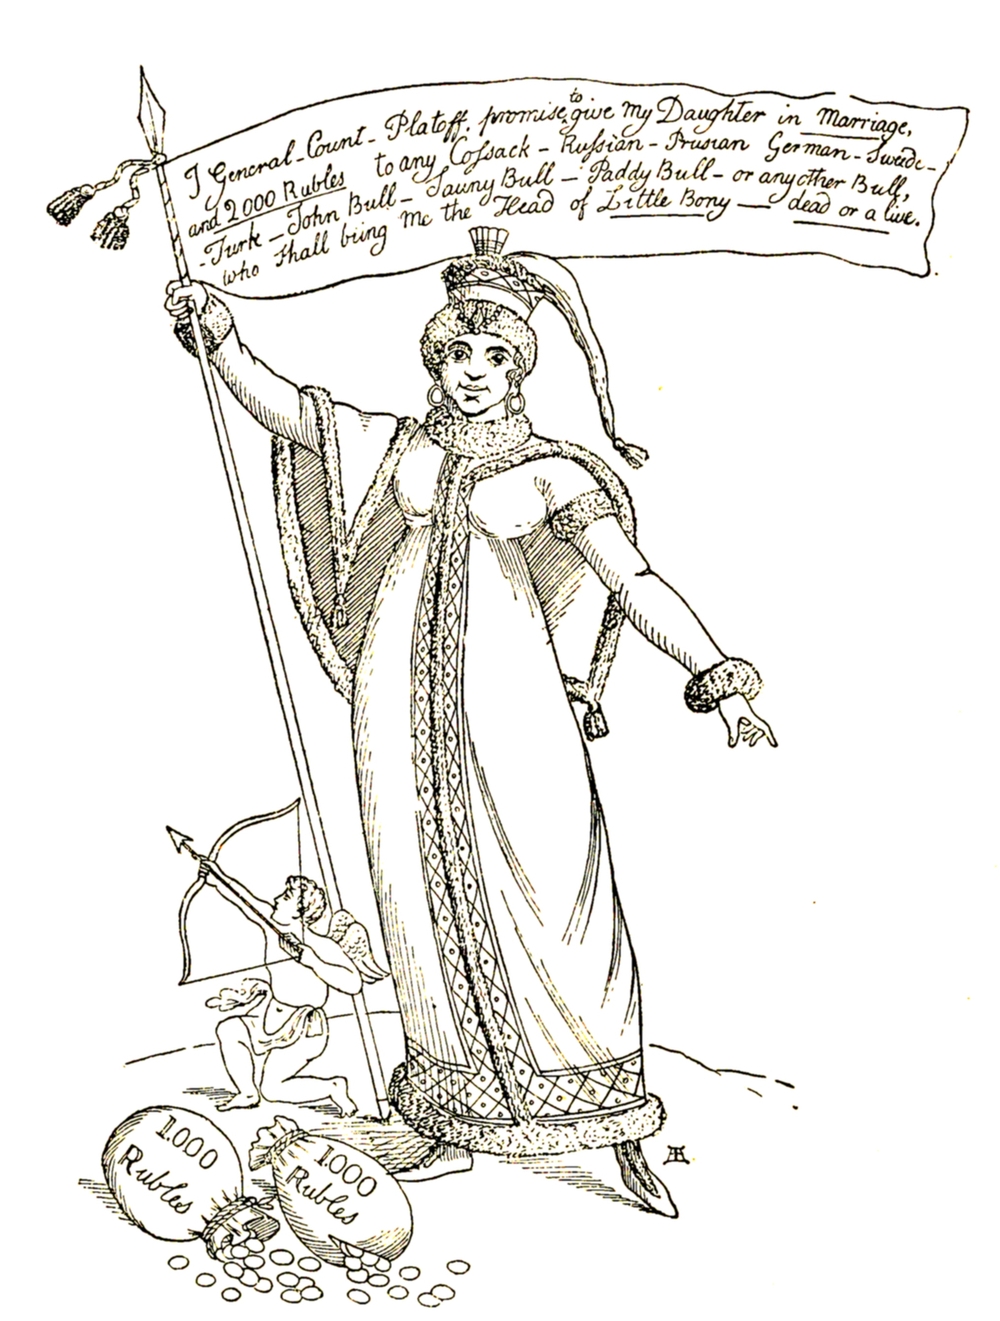 I General-Count-Platoff. promise to give my Daughter in Marriage,
and 2000 Rubles to any Cossack - Russian - Prusian German - Swede -
- Turk - John Bull - Sauny Bull - Paddy Bull - or any other Bull,
who shall bring Me the Head of Little Bony - dead or alive.
1000
Rubles
1000
Rubles